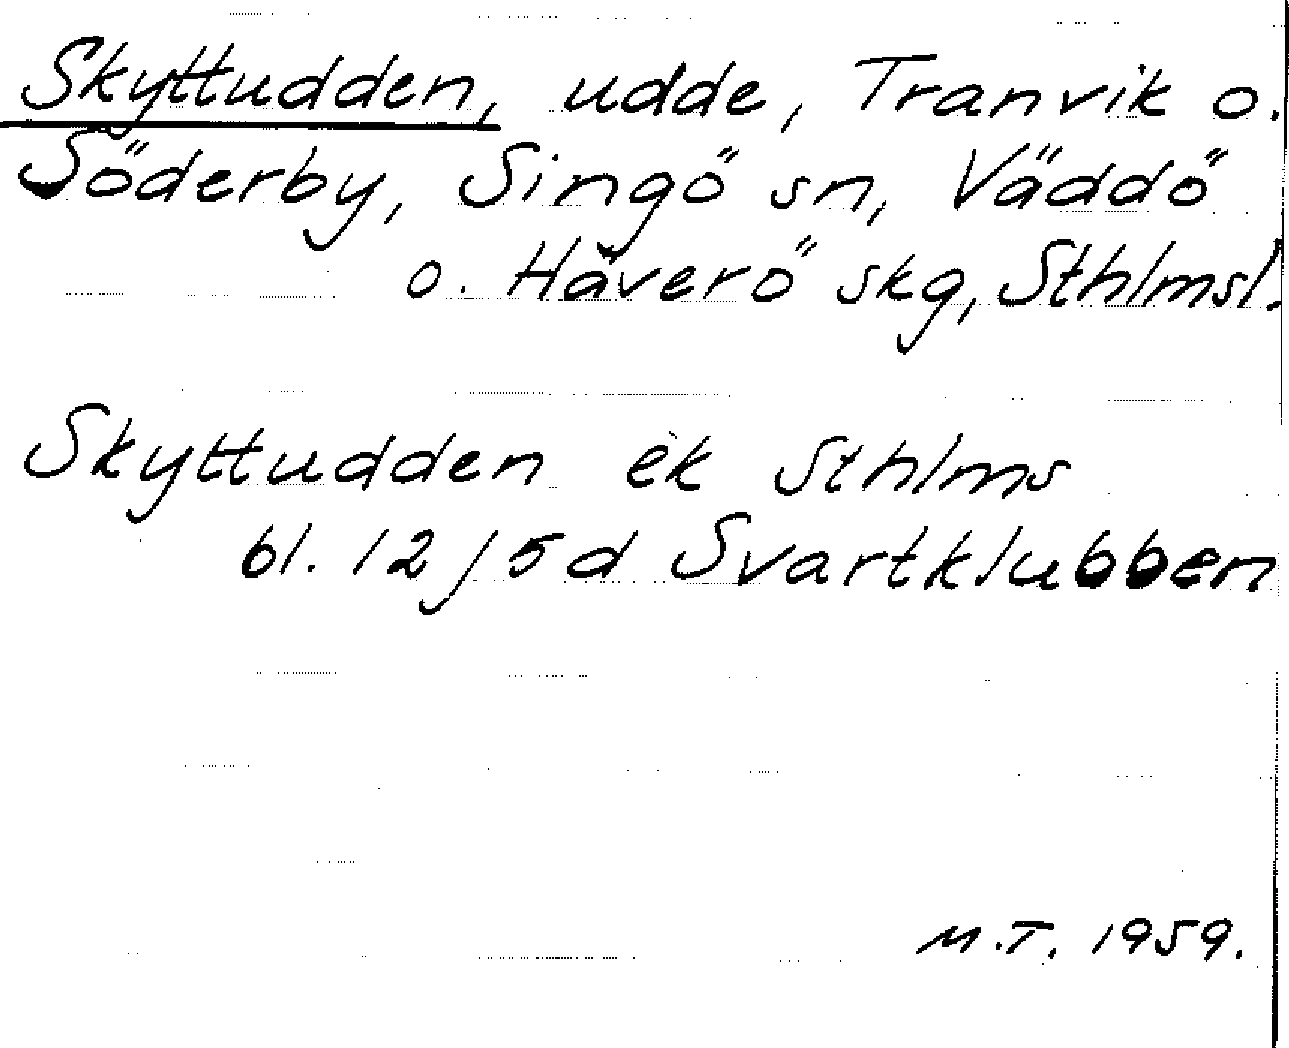 Skyttudden, udde, Tranvik o.
Söderby, Singö sn, Väddö
o. Häverö skg, Sthlmsl.
Skyttudden ek Sthlms
bl. 12/5d Svartklubben
M.T. 1959.